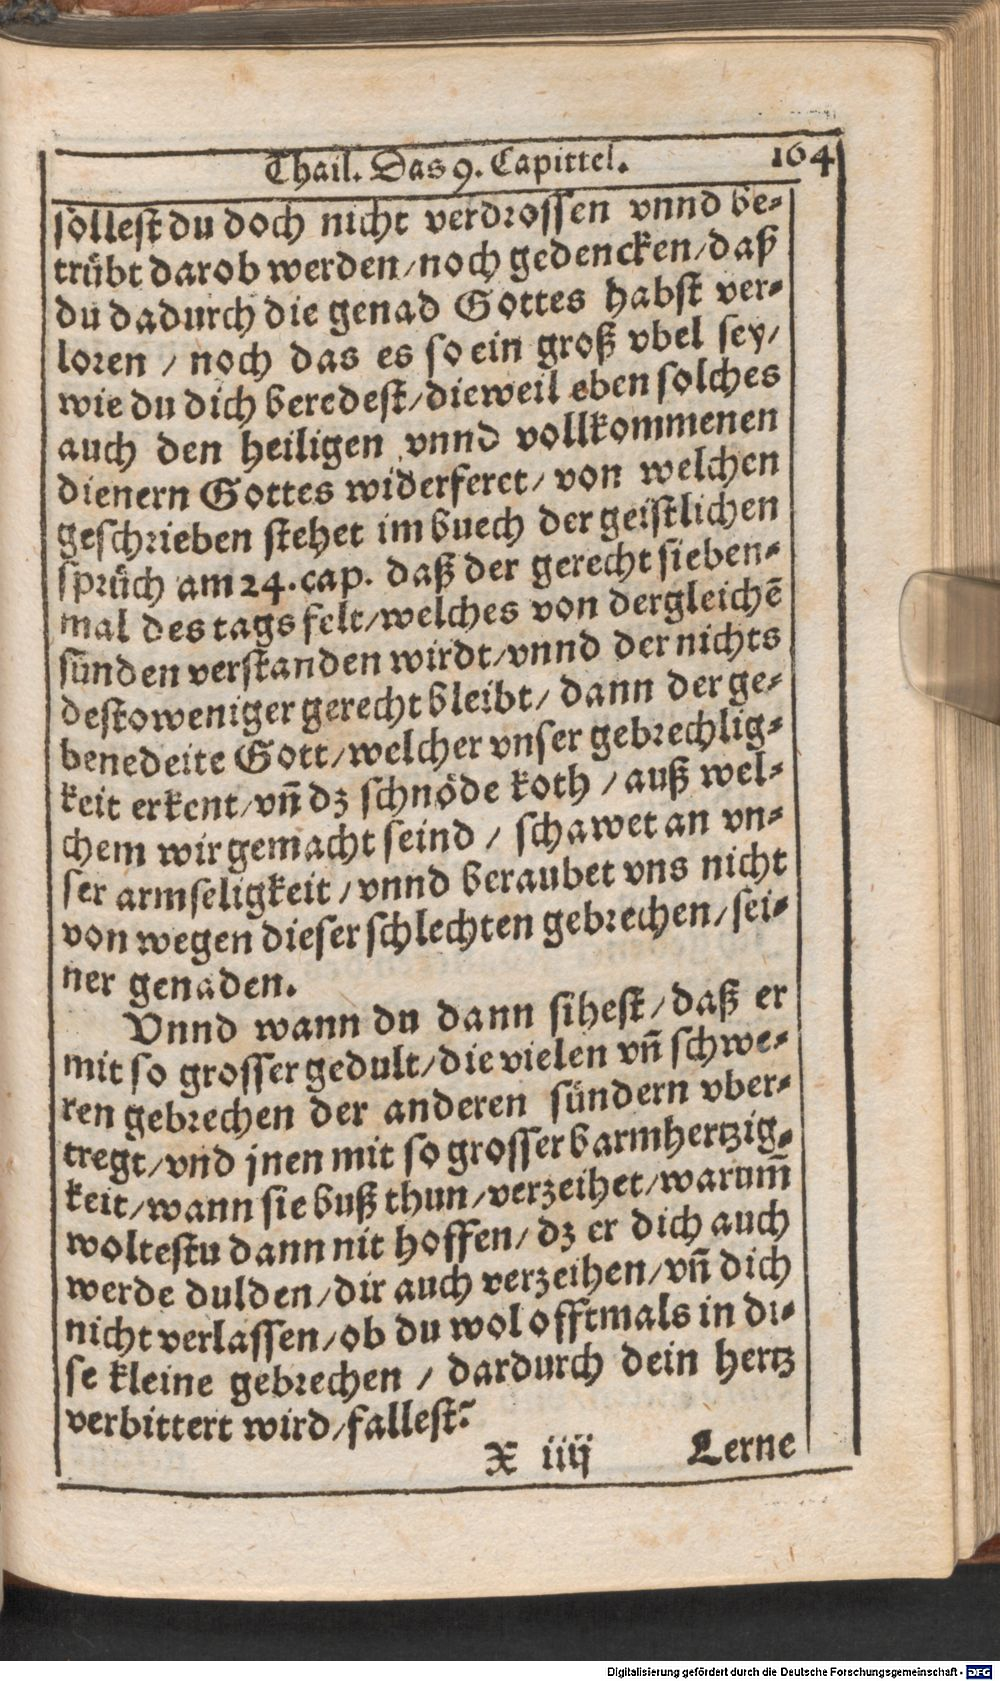 Thail. Das 9. Capittel. 164
söllest du doch nicht verdrossen vnnd be-
trübt darob werden/noch gedencken/daß
du dadurch die genad Gottes habst ver-
loren / noch das es so ein groß vbel sey/
wie du dich beredest/dieweil eben solches
auch den heiligen vnnd vollkommenen
dienern Gottes widerferet/ von welchen
geschrieben stehet im buech der geistlichen
sprüch am 24. cap. daß der gerecht sieben-
mal des tags felt/welches von dergleichē
sünden verstanden wirdt/vnnd der nichts
destoweniger gerecht bleibt/ dann der ge-
benedeite Gott/welcher vnser gebrechlig-
keit erkent/vñ dz schnöde koth / auß wel-
chem wir gemacht seind / schawet an vn-
ser armseligkeit/vnnd beraubet vns nicht
von wegen dieser schlechten gebrechen/sei-
ner genaden.
Vnnd wann du dann sihest/daß er
mit so grosser gedult/die vielen vñ schwe-
ren gebrechen der anderen sündern vber-
tregt/vnd jnen mit so grosser barmhertzig-
keit/wann sie buß thun/verzeihet/warum̄
woltestu dann nit hoffen/ dz er dich auch
werde dulden/dir auch verzeihen/vñ dich
nicht verlassen/ob du wol offtmals in di-
se kleine gebrechen / dardurch dein hertz
verbittert wird/fallest?
X iiij Lerne
Digitalisierung gefördert durch die Deutsche Forschungsgemeinschaft - DFG